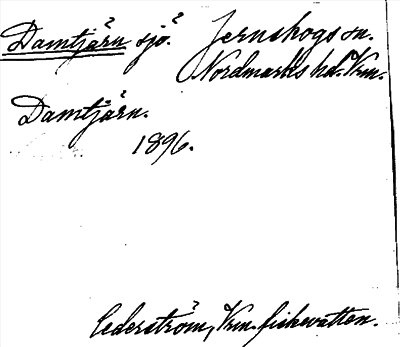 Damtjärn sjö? Jernskogs sn.
Nordmarks hd. Vrm.
Damtjärn.
1896.
Cederström, Vrm. fiskevatten.